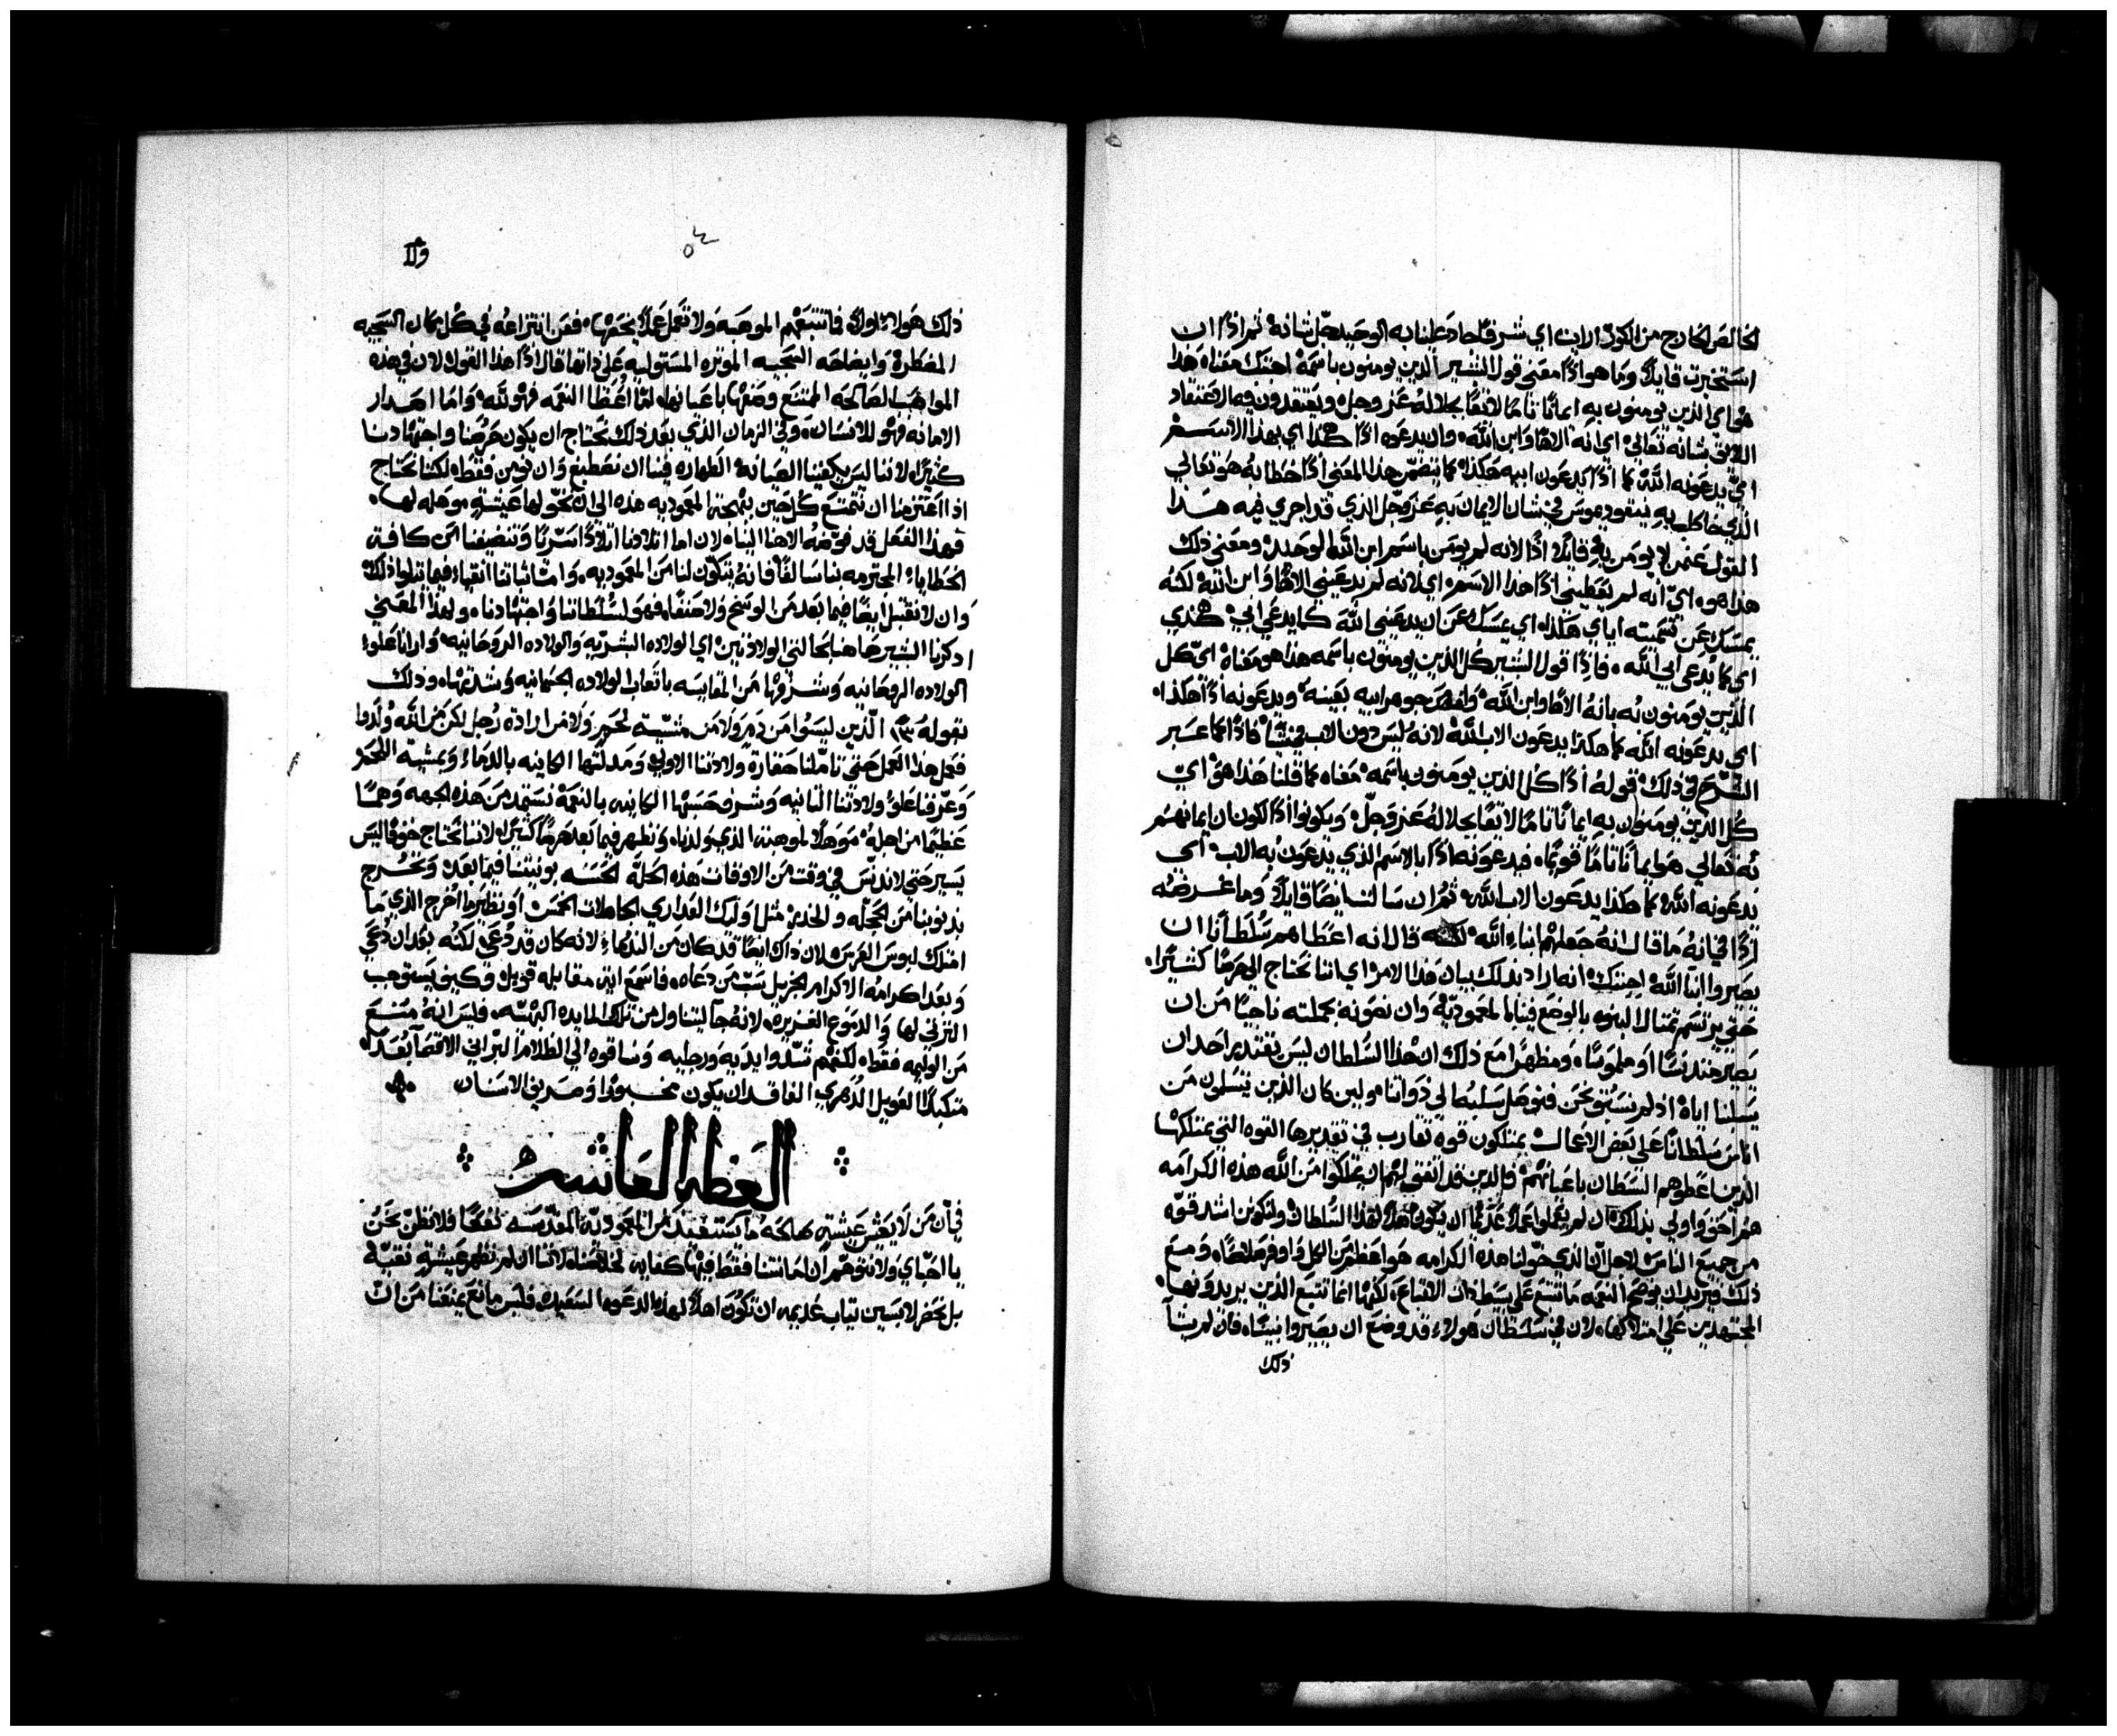 الخالص الخارج من الكون الابن اي شرفًا جاد علينا به الوحيد جل شانه ثم اذًا ان
استخبرت قايلًا وما هو اذًا معني قول البشير الذين يومنون باسمه اجبتك معناه هذا
هو اي الذين يومنون به ايمانًا تامًا لايقًا بجلاله عز وجل ويعتقدون فيه الاعتقاد
اللايق شانه تعالي اي انه الاهًا وابن الله وان يدعوه اذًا هكذا اي بهذا الاسم
اي يدعونه الله كما اذًا يدعون ابيه هكذا كما يتضمن هذا المعني اذًا خطابه هو تعالي
الذي خاطب به نيقوديموس في شان الايمان به عز وجل الذي قد اجري فيه هذا
القول عمن لا يومن به قايلًا اذًا لانه لم يومن باسم ابن الله الوحيد ومعني ذلك
هذا هو اي انه لم يعطيني اذًا هذا الاسم اي لانه لم يدعيني الاهًا وابن الله لكنه
يمسك عن تسميته اياي هكذا اي يمسك عن ان يدعيني الله كما يدعي ابي هكذي
اي كما يدعي ابي الله فاذًا قول البشير كل الذين يومنون باسمه هذا هو معناه اي كل
الذين يومنون به بانه الاهًا وابن الله جوهر ابيه بعينه ويدعونه اذًا هكذا
اي يدعونه الله كما هكذا يدعون الاب الله لانه ليس دون الاب في شيًا فاذًا كما عبر
الشرح في ذلك قوله اذًا كل الذين يومنون باسمه معناه كما قلنا هذا هو اي
كل الذين يومنون به ايمانًا تامًا لايقًا بجلاله عز وجل ويكونوا اذًا لكون ان ايمانهم
به تعالي هو ايمانًا تامًا قويمًا فيدعونه اذًا بالاسم الذي يدعون به الاب اي
يدعونه الله كما هكذا يدعون الاب الله ثم ان سالتنا ايضًا قايلًا وما غرضه
اذًا في انه ما قال انه جعلهم ابناء الله لكنه قال انه اعطاهم سلطانًا ان
يصيروا ابنا الله اجبتك انه اراد بذلك بيان هذا الامر اي اننا نحتاج الي حرصًا كثيرًا
حتي يرتسم تمثال البنوه بالوضع فينا بالمعموديه وان نصونه بجملته ناجيًا من ان
يصير مندنسًا او ملموسًا ومظهرًا مع ذلك ان هذا السلطان ليس يقتدير احد ان
يسلبنا اياه اذ لم نستبق نحن فنوصل سلبه الي ذواتنا ولين كان الذين يتسلون من
اناس سلطانًا علي بعض الاعمال يمتلكون قوه تقارب في تقديرها القوه التي يمتلكها
الذين اعطوهم السلطان باعيانهم فالذين قد اتفق لهم ان يمتلكوا من الله هذه الكرامه
هم احق واولي بذلك ان لم يعملوا عملًا عديمًا ان يكون اهلًا لهذا السلطان وليكونن اشد قوه
من جميع الناس لاجل ان الذي خولنا هذه الكرامه هو اعظم من الكل واوفر صلاحًا ومع
ذلك فيريد ان يوضح ان النعمه ما تتبع علي بسيط ذات الاقتباع لكنها انما تتبع الذين يريدونها
المجتهدين علي امتلاكها لان في سلطان هولاء قد وضع ان يصيروا بنينًا فان لم يشا
ذلك
ذلك هولاء اولًا فما تتبعهم الموهبه ولا تعمل عملًا يخصها فقد انتزاعه في كل مكان السجيه
المضطره وايضاحه السجيه الموثره المستوليه علي ذاتها قال اذًا هذا القول لان في هذه
المواهب الصالحه الممتنع وصفها باعيانها اما اعطا النعمه فهو لله واما اصدار
الامانه فهو للانسان وفي الزمان الذي بعد ذلك نحتاج ان يكون حرصنا واجتهادنا
كثيرًا لاننا ليس يكفينا لصيانة الطهاره فينا ان نصطبغ وان نومن فقط لكننا نحتاج
اذا اعتزمنا ان نتمتع كل حين بنمحة المعموديه هذه الي ان نخولها عيشةٍ موهله لها
فهذا الفعل قد فوضه الاهنا الينا لان اما ايلادنا ايلادًا سريًا وتنضيفنا من كافة
الخطايا المجترمه بنا سالفًا فانه يتكون لنا من المعموديه واما ثباتنا انقياء فيما يتلوا ذلك
وان لا نقبل ايضًا فيما بعد من الوسخ ولا صنفًا فهو لسلطاننا واجتهادنا ولهذا المعني
اذكرنا البشير هاهنا بحالتي الولادتين اي الولاده البشريه والولاده الروحانيه وارانا علوًا
الولاده الروحانيه وشرفها من المقايسه باتعاب الولاده الجسمانيه وشدتها وذلك
بقوله الذين ليسوا من دم ولا من مشية لحم ولا من ارادة رجل لكن من الله ولدوا
فعمل هذا العمل حتي تاملنا حقارة ولادتنا الاولي ومذلتها الكاينه بالدماء وبمشية اللحم
وعرفنا علو ولادتنا الثانيه وشرف حسبها الكاينه بالنعمه نستمد من هذه الجهه وهمًا
عظيمًا من اجله موهلًا لموهبة الذي ولدنا ونظهر فيما بعد حرصًا كثيرًا لاننا نحتاج خوفًا ليس
يسير حتي لا ندنس في وقت من الاوقات هذه الحله الحسنه بونيتنا فيما بعد ونخرج
بذنوبنا من الحجله والخدر مثل اوليك العداري الجاهلات الخمس او نظير ما اخرج الذي ما
امتلك لبوس العرس لان ذاك ايضًا قد كان من الندماء لانه كان قد دعي لكنه بعد ان دعي
وبعد اكرامه الاكرام الجزيل سب من دعاه فاسمع اية مقابله قوبل وكيف يستوجب
الترثي لها والدموع الغزيره لانه جا ليتناول من تلك المايده البهيه فليس انه منع
من الوليمه فقط لكنهم شدوا يديه ورجليه وساقوه الي الظلام البراني الاقصا بعدًا
متكبدًا العويل الدهري الفاقد ان يكون محسودًا وصرير الاسنان
العظه العاشره
في ان من لا يعش عيشةٍ صالحه ما يستفيد من المعموديه المقدسه نفعًا فلا نظن نحن
يا احباي ولا نتوهم ان امانتنا فقط فيها كفايه لخلاصنا لاننا ان لم نظهر عيشةٍ نقيه
بل نحضر لابسين ثياب عديمه ان تكون اهلًا لهذه الدعوه السعيده فليس مانع يمنعنا من ان